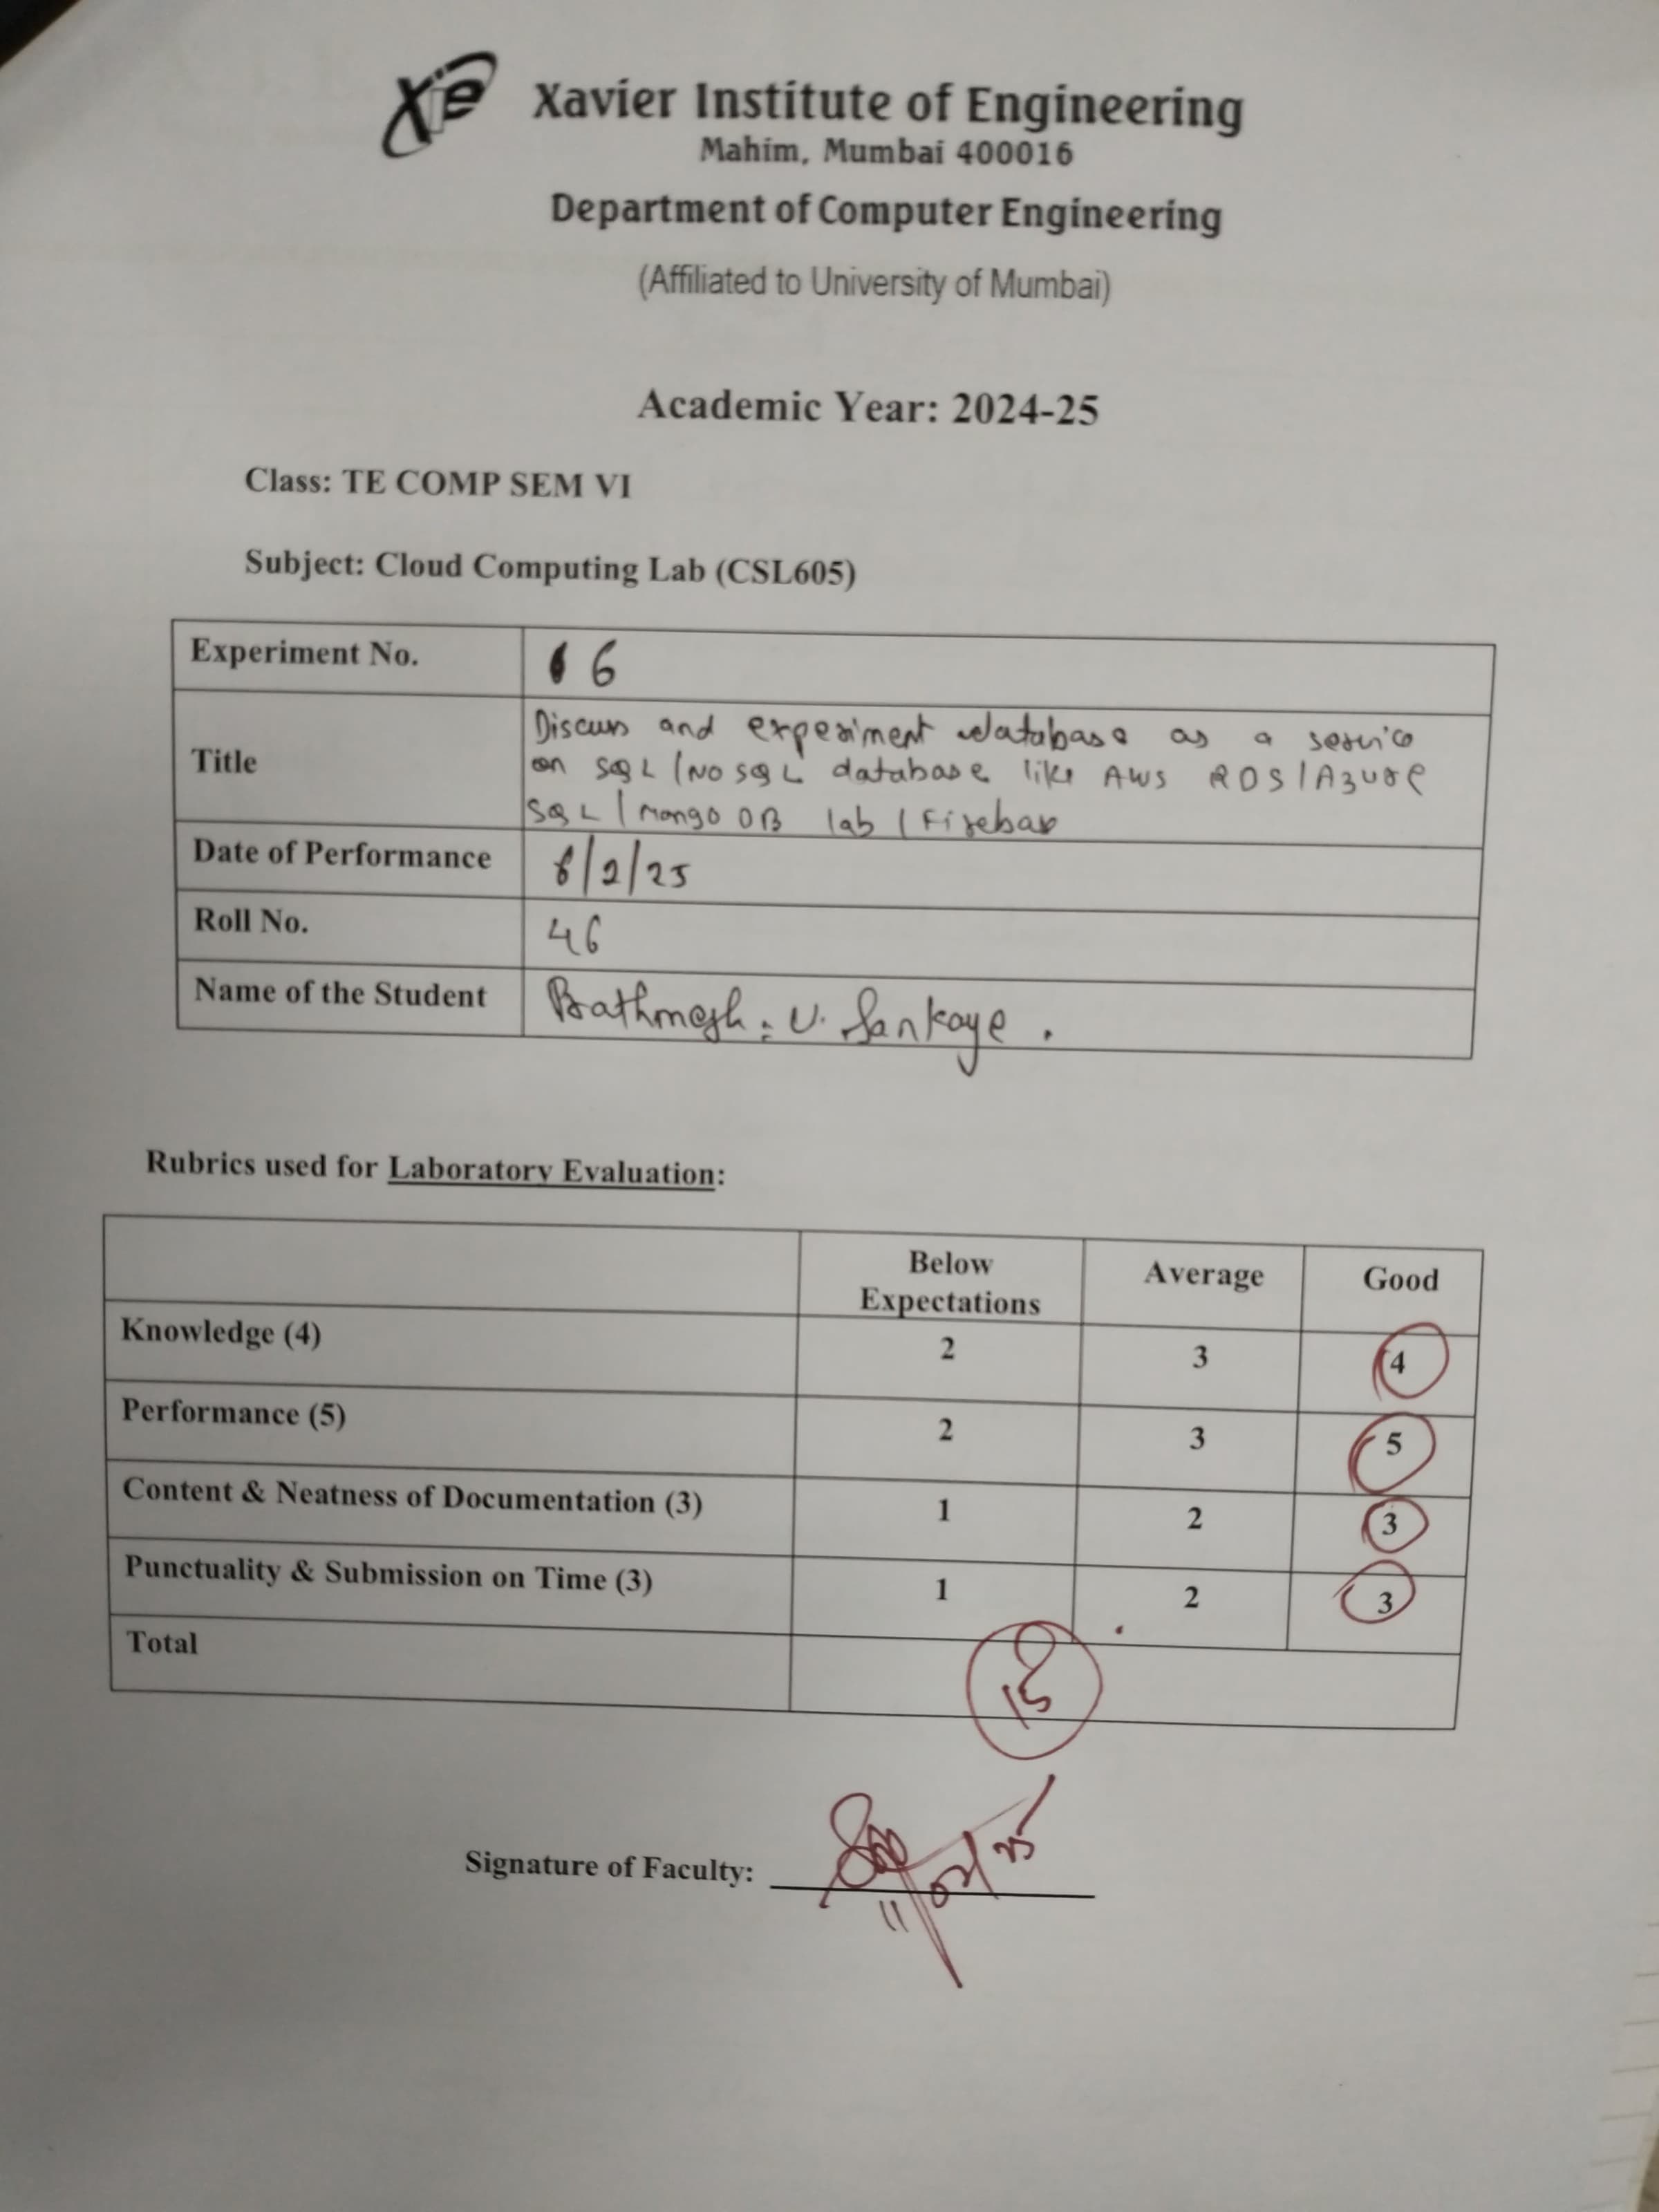 Xie Xavier Institute of Engineering
Mahim, Mumbai 400016
Department of Computer Engineering
(Affiliated to University of Mumbai)
Academic Year: 2024-25
Class: TE COMP SEM VI
Subject: Cloud Computing Lab (CSL605)
Experiment No. 6
Title Discuss and experiment database as a service
on SQL/NoSQL database like AWS RDS/Azure
SQL/MongoDB lab/Firebase
Date of Performance /2/25
Roll No. 46
Name of the Student Prathmesh. U. Sankaye.
Rubrics used for Laboratory Evaluation:
Below Expectations Average Good
Knowledge (4) 2 3 4
Performance (5) 2 3 5
Content & Neatness of Documentation (3) 1 2 3
Punctuality & Submission on Time (3) 1 2 3
Total 15
Signature of Faculty:
11/02/25